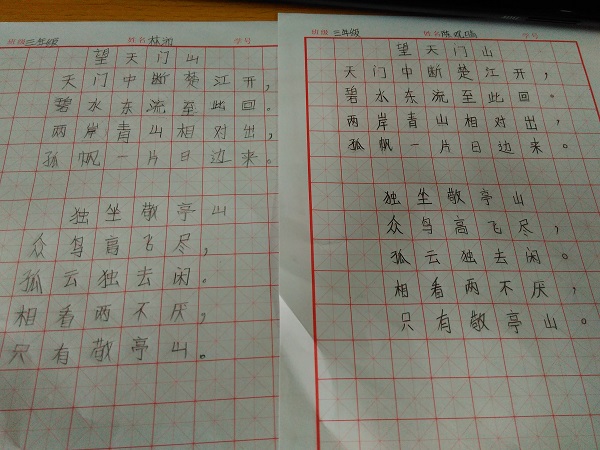 班级 三年级 姓名 学号
望天门山
天门中断楚江开，
碧水东流至此回。
两岸青山相对出，
孤帆一片日边来。
独坐敬亭山
众鸟高飞尽，
孤云独去闲。
相看两不厌，
只有敬亭山。
班级 三年级 姓名 陈 学号
望天门山
天门中断楚江开，
碧水东流至此回。
两岸青山相对出，
孤帆一片日边来。
独坐敬亭山
众鸟高飞尽，
孤云独去闲。
相看两不厌，
只有敬亭山。